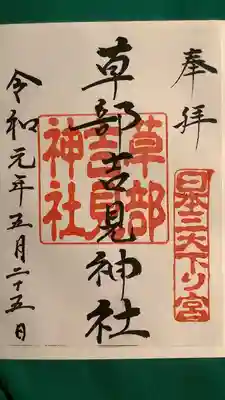 奉拝
日本三大下り宮
草部吉見神社
草部吉見神社
令和元年五月二十五日